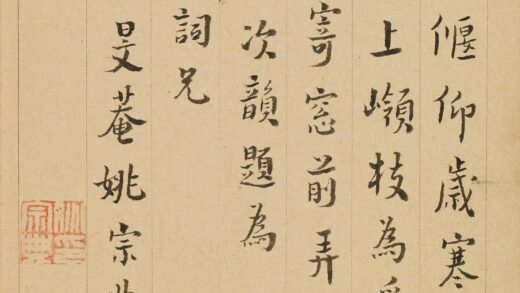 偃仰歲寒
上嶺枝為
寄窓前弄
次韻題為
詞兄
旻菴姚宗